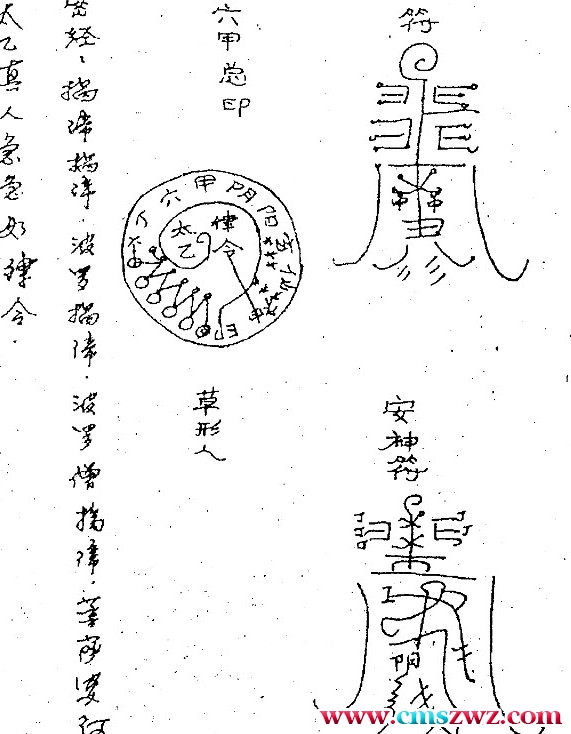 符
安神符
阴
六甲总印
六甲阴阳
太乙
律令
印
草形人
经、揭谛揭谛.波罗揭谛.波罗僧揭谛.菩萨婆诃
太乙真人急急如律令.
www.cmszwz.com